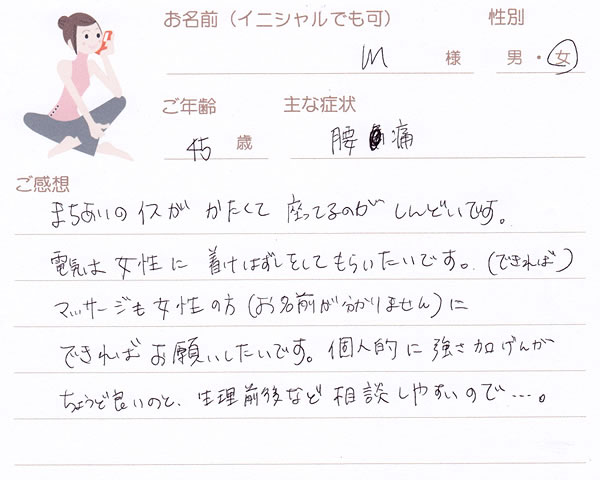 お名前（イニシャルでも可） 性別
M 様 男・女
ご年齢 主な症状
45 歳 腰痛
ご感想
まちあいのイスが かたくて 座ってるのが しんどいです。
電気は 女性に 着けはずしをしてもらいたいです。（できれば）
マッサージも女性の方（お名前が分かりません）に
できればお願いしたいです。個人的に強さ加げんが
ちょうど良いのと、生理前後など 相談しやすいので…。